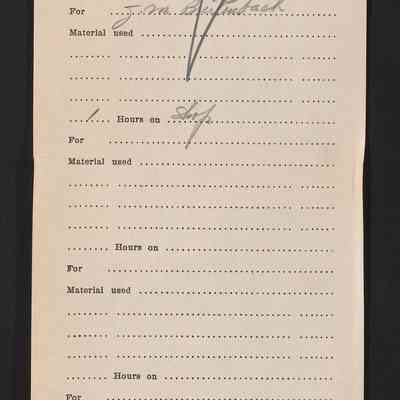 For
Material used
1 Hours on Shop
For
Material used
Hours on
For
Material used
Hours on
For